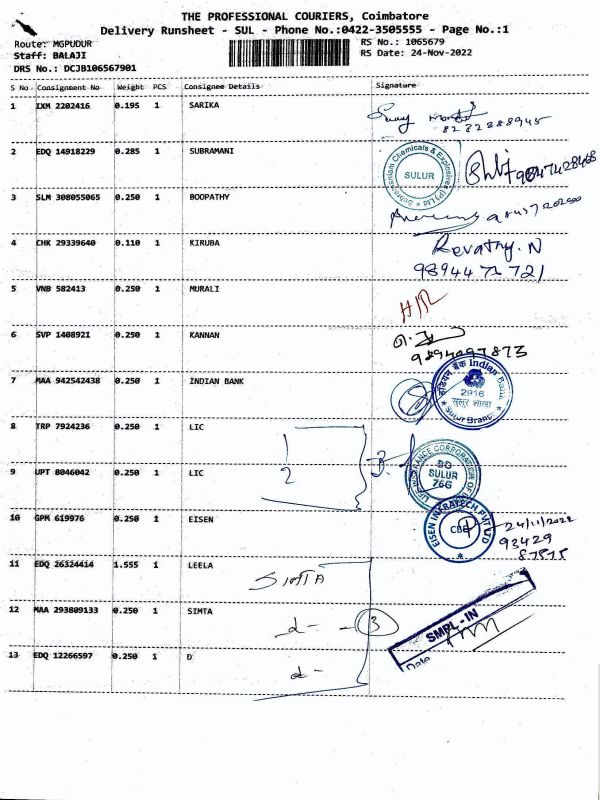 THE PROFESSIONAL COURIERS, Coimbatore
Delivery Runsheet - SUL - Phone No.:0422-3505555 - Page No.:1
Route: MGPUDUR
RS No.: 1065679
Staff: BALAJI
RS Date: 24-Nov-2022
DRS No.: DCJB106567901
S No Consignment No Weight PCS Consignee Details Signature
1 IXM 2202416 0.195 1 SARIKA
8232888945
2 EDQ 14918229 0.285 1 SUBRAMANI
Subramaniam Chemicals & Explosives (P) Ltd
SULUR
3 SLM 308055065 0.250 1 BOOPATHY
4 CHK 29339640 0.110 1 KIRUBA
Revathy. N
9894471721
5 VNB 582413 0.250 1 MURALI
6 SVP 1408921 0.250 1 KANNAN
9894097873
7 MAA 942542438 0.250 1 INDIAN BANK
इंडियन बैंक Indian Bank
2916
सुलूर शाखा
Sulur Branch
8 TRP 7924236 0.250 1 LIC
9 UPT 8046042 0.250 1 LIC
2
LIFE INSURANCE CORPORATION OF
BO
SULUR
766
10 GPM 619976 0.250 1 EISEN
EISEN INFRATECH PVT LTD
CBE
24/11/2022
93429
87575
11 EDQ 26324414 1.555 1 LEELA
SIMTA
12 MAA 293809133 0.250 1 SIMTA
3
SMPL - IN
Date
13 EDQ 12266597 0.250 1 D